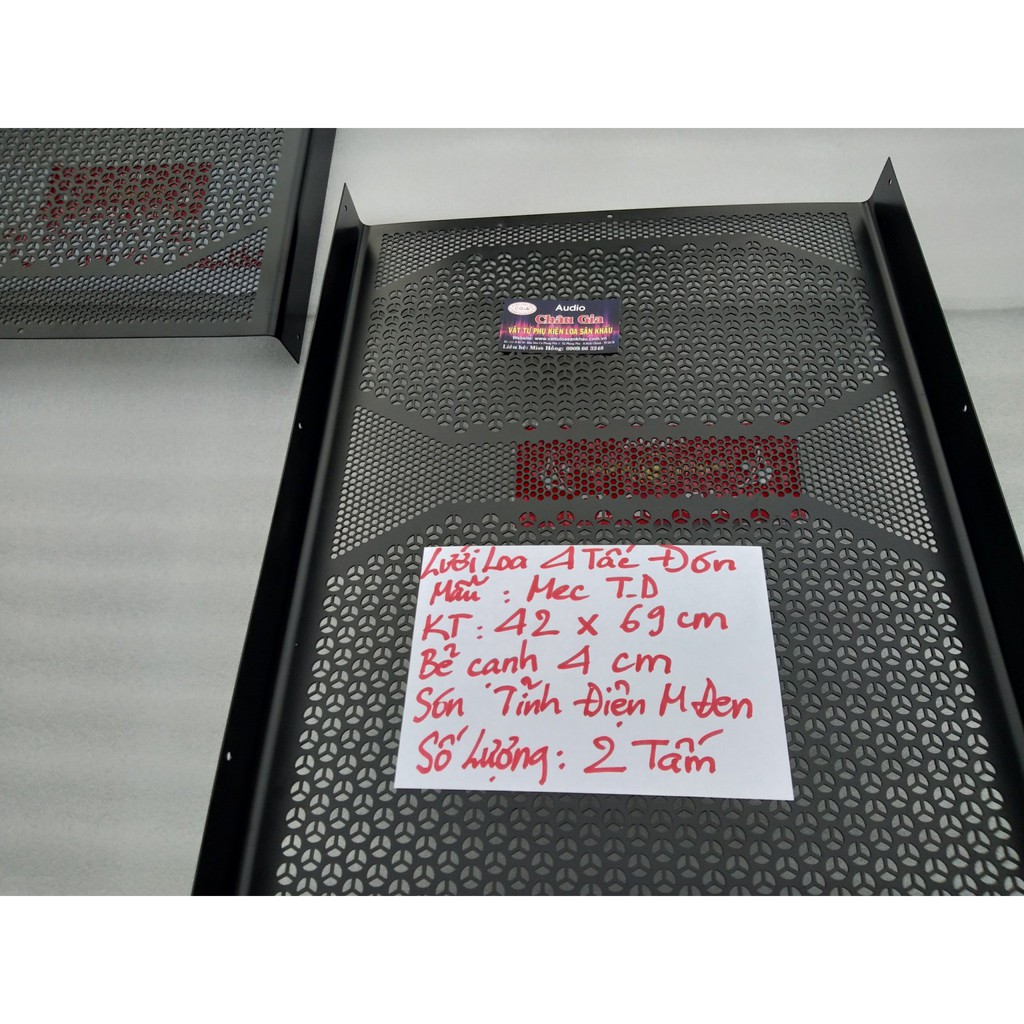 Audio
Châu Gia
VẬT TƯ PHỤ KIỆN LOA SÂN KHẤU
Website: www.vattuloasankhau.com.vn
Liên hệ: Minh Hồng: 0909.66 3246
Lưới Loa 4 Tấc Đơn
Mẫu : Mec T-D
KT : 42 x 69 cm
Bẻ cạnh 4 cm
Sơn Tĩnh Điện M Đen
Số Lượng : 2 Tấm